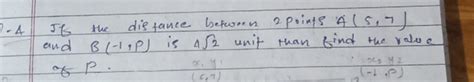 Q-4 If the distance between 2 points A(5,7)
and B(-1,P) is 4√2 unit than find the value
of P.
x, y,
(5,7)